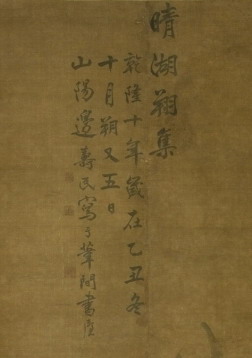 晴湖翔集
乾隆十年歲在乙丑冬
十月朔又五日
山陽邊壽民寫于葦間書屋